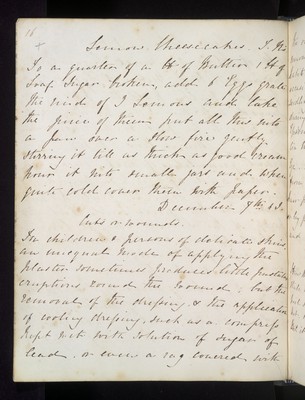 16
Lemon Cheesecakes.
To a quarter of a lb of Butter 1 lb of
Loaf Sugar broken, add 6 Eggs grate
the rind of 3 Lemons and take
the juice of them put all this into
a pan over a slow fire gently
stirring it till as thick as good cream
pour it into small jars and when
quite cold cover them with paper.
December 7th
Cuts or wounds.
In children & persons of delicate skins
an unequal mode of applying the
plaster sometimes produces little pustular
eruptions round the wound; but the
removal of the dressing & the application
of cooling dressing, such as a compress
kept wet with solution of sugar of
lead, or even a rag covered with